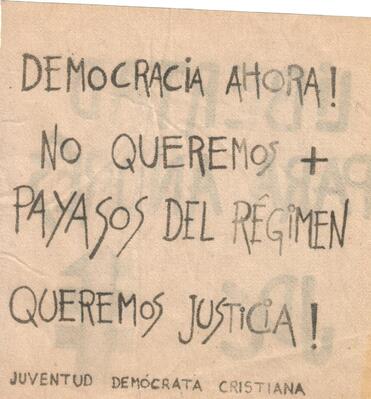 DEMOCRACIA AHORA!
NO QUEREMOS +
PAYASOS DEL RÉGIMEN
QUEREMOS JUSTICIA!
JUVENTUD DEMÓCRATA CRISTIANA